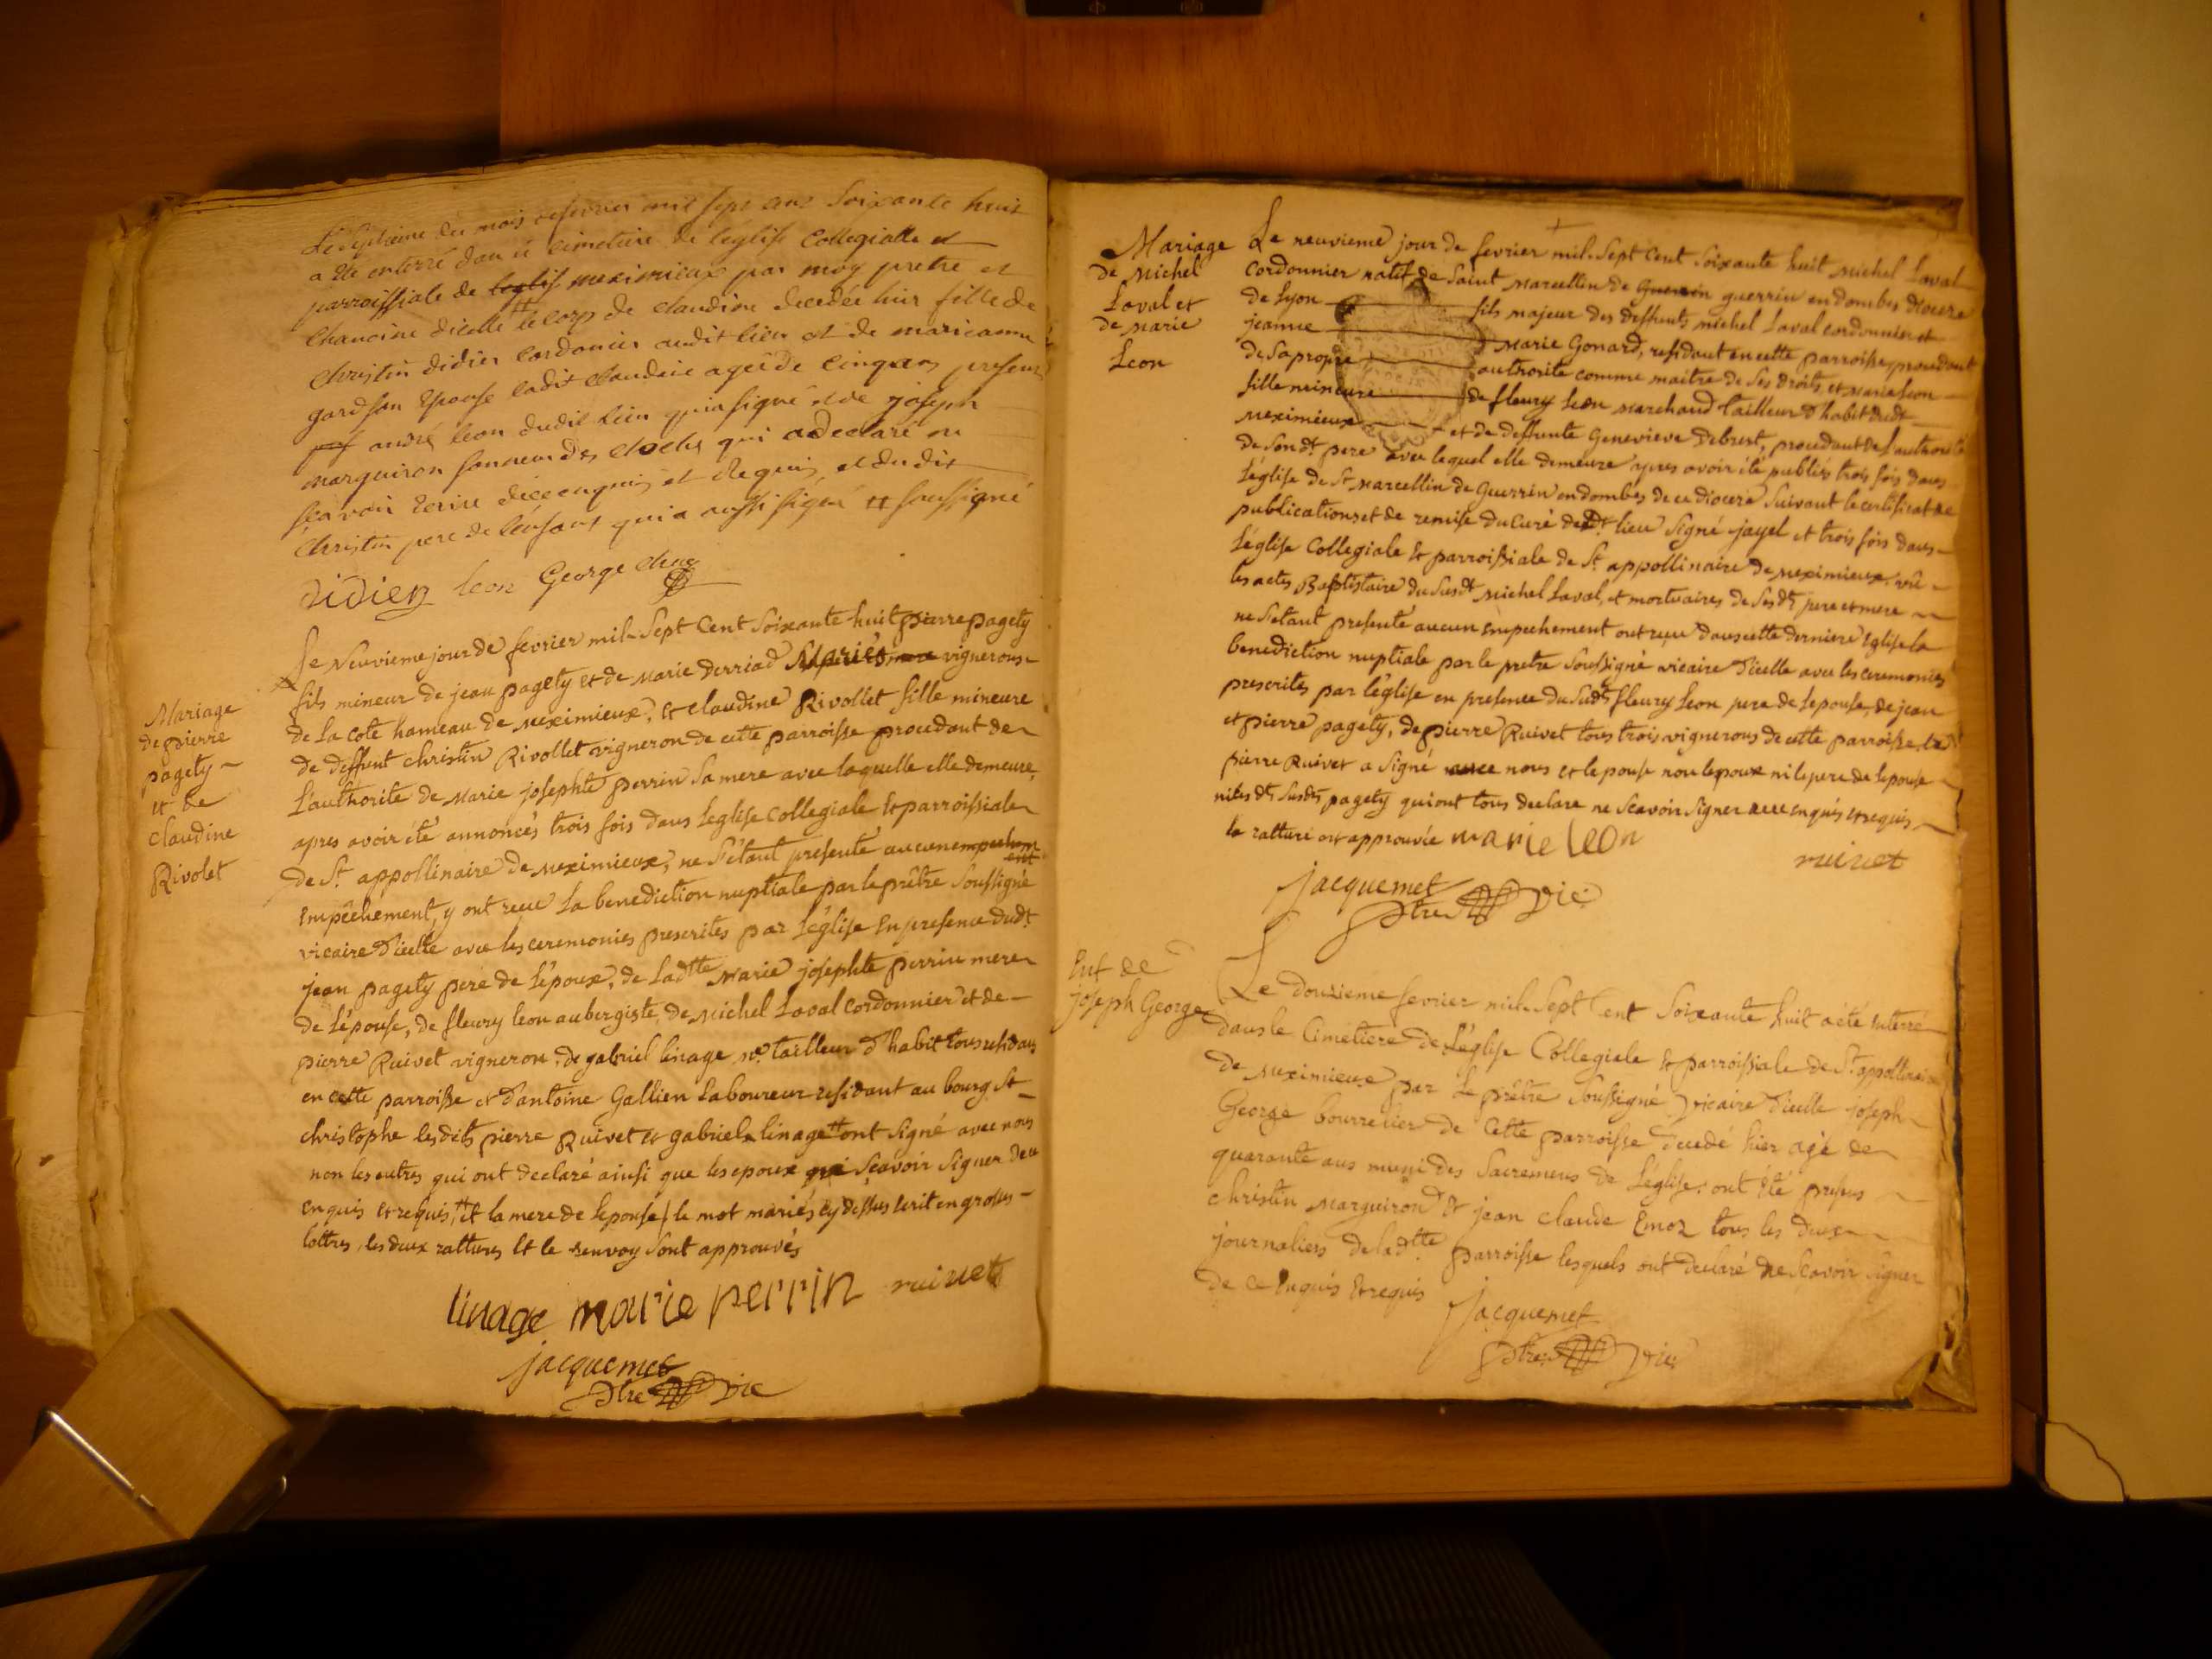 Le septieme du mois de fevrier mil sept cent soixante huit
a ete enterré dan le cimetiere de l'eglise Collegialle et
parroissiale de leglise meximieux par moy pretre et
chanoine dicelle # le corps de claudine decedée hier fille de
christin didier cordonier audit lieu et de marieanne
gard son Epouse ladit claudine agée de cinq ans presens
andré leon dudit lieu qui a signé et de joseph
marguiron sonneur des cloches qui a declaré ne
sçavoir Ecrire dice enquis et Requis et dudit
Christin pere de l'enfant qui a aussi signé # soussigné
didier leon George chne
Mariage
de pierre
pagety
et de
claudine
Rivolet
Le Neuvieme jour de fevrier mil Sept Cent Soixante huit pierre pagety
fils mineur de jean pagety et de Marie derriad Mariés vignerons
de La Cote hameau de Meximieux, et claudine Rivollet fille mineure
de deffunt christin Rivollet vigneron de cette parroisse procedant de
L'authorité de Marie josephte perrin Sa mere avec laquelle elle demeure,
apres avoir été annoncés trois fois dans Leglise Collegiale et parroissiale
de St. appollinaire de Meximieux, ne S'étant presenté aucun empechement
Empêchement, y ont reçu La benediction nuptiale par le prêtre Soussigné
vicaire d'icelle avec les ceremonies prescrites par L'église En presence dudt
jean pagety pere de L'époux, de Ladtte Marie josephte perrin mere
de L'épouse, de fleury leon aubergiste, de Michel Laval Cordonnier et de
pierre Ruivet vigneron, de gabriel linage me tailleur d'habit tous residans
en cette parroisse et d'antoine Gallien Laboureur residant au bourg St
christophe lesdits pierre Ruivet et gabriel linage # ont signé avec nous
non les autres qui ont declaré ainsi que les epoux Sçavoir Signer de ce
enquis et requis, # et la mere de lepouse / le mot mariés cy dessus ecrit en grosses
lettres, les deux rattures Et le renvoy Sont approuvés
linage marie perrin ruivet
jacquemet
ptre vic
Mariage
de Michel
Laval et
de Marie
Leon
Le neuvieme jour de fevrier mil Sept Cent Soixante huit Michel Laval
Cordonnier natif de Saint Marcellin de Guerrin guerrin en dombes diocese
de Lyon fils majeur des deffunts michel Laval cordonnier et
jeanne Marie Gonard, residant en cette parroisse, procedant
de Sa propre authorité comme maitre de Ses droits, et Marie leon
fille mineure de fleury Leon Marchand tailleur d'habit dudt
Meximieux et de deffunte Genevieve debrest, procedant de l'authorité
de Son dt pere avec lequel elle demeure apres avoir été publiés trois fois dans
Léglise de St Marcellin de Guerrin en dombes de ce diocese Suivant le certificat de
publications et de remise du Curé dudt lieu Signé jayel et trois fois dans
L'église Collegiale et parroissiale de St. appollinaire de Meximieux vû
les actes Baptistaire du Susdt Michel Laval, et mortuaires de Sesdts pere et mere
ne Setant presenté aucun Empechement ont reçu dans cette derniere Eglise la
benediction nuptiale par le pretre Soussigné vicaire d'icelle avec les ceremonies
prescrites par L'église en presence du Susdt fleury Leon pere de Lepouse, de jean
et pierre pagety, de pierre Ruivet tous trois vignerons de cette parroisse, led
pierre Ruivet a Signé avec nous et lepouse non lepoux ni le pere de lepouse
ni lesdts Susdts pagety qui ont tous declaré ne Scavoir Signer de ce enquis et requis
la ratture est approuvée marie leon
ruivet
jacquemet
ptre vic
Ent de
joseph George
Le douzieme fevrier mil Sept Cent Soixante huit a été enterré
dans le Cimetiere de L'église Collegiale et parroissiale de St. appollinaire
de Meximieux par Le prêtre Soussigné vicaire d'icelle joseph
George bourrelier de Cette parroisse decedé hier agé de
quarante ans muni des Sacremens de L'église: ont Été presens
christin Marguiron et jean Claude Emoz tous les deux
journaliers de ladtte parroisse lesquels ont declaré ne Scavoir Signer
de ce Enquis et requis
Jacquemet
ptre vic